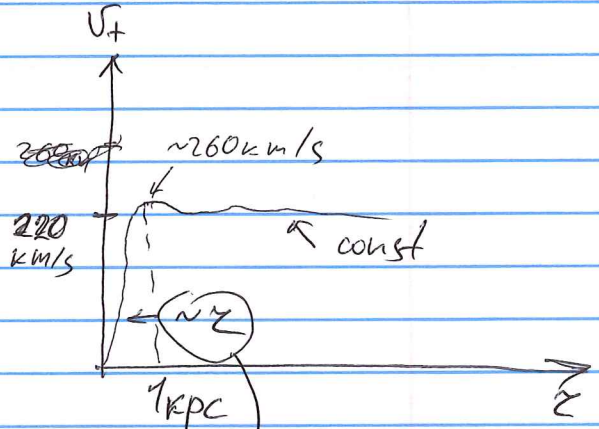 v_t
~260 km/s
220
km/s
const
~r
1 kpc
r